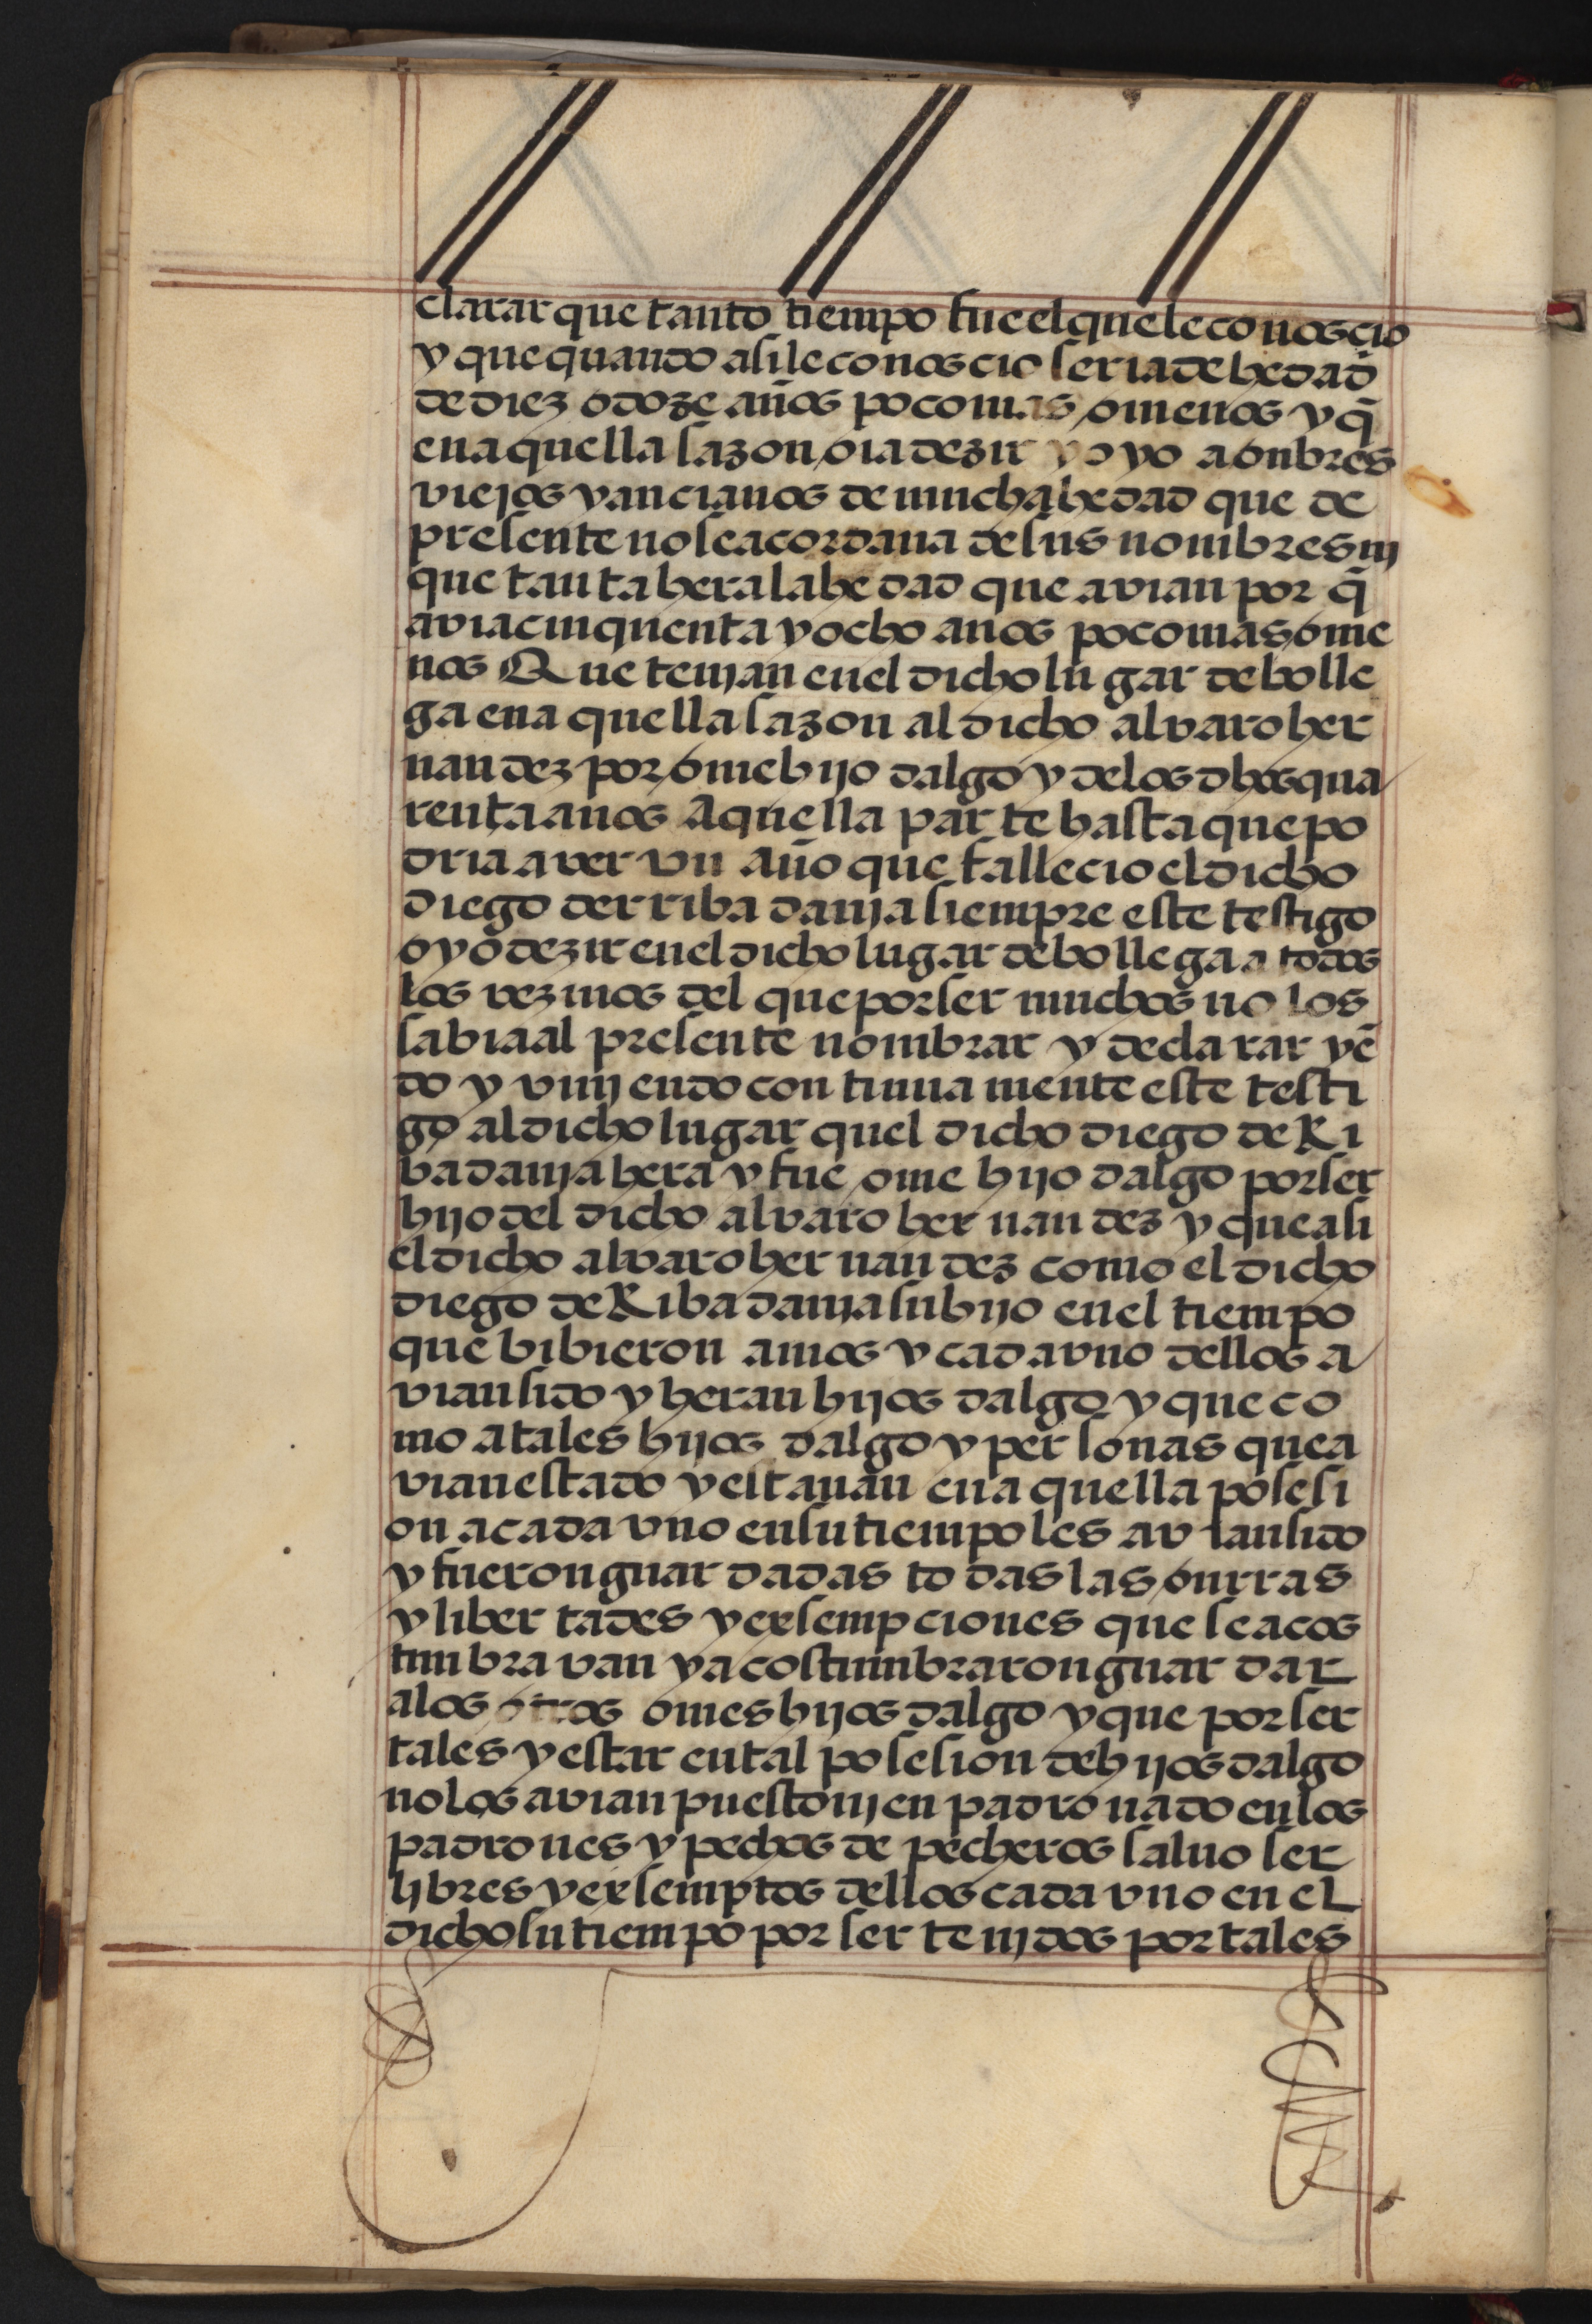 clarar que tanto tiempo fue el que le conosçio
y que quando asi le conosçio seria de hedad
de diez o doze años poco mas o menos y q̃
en aquella sazon oia dezir y oyo a onbres
viejos y ancianos de mucha hedad que de
presente no se acordaua de sus nonbres nj
que tanta hera la hedad que avian por q̃
avia cinquenta y ocho anos poco mas o me
nos Que tenjan en el dicho lugar de bolle
ga en aquella sazon al dicho alvaro her
nandez por ome hijo dalgo y de los dhos qua
renta anos Aquella parte hasta que po
dria aver vn Año que fallecio el dicho
diego de rribadania siempre este testigo
oyo dezir en el dicho lugar de bollega a todos
los vezinos del que por ser muchos no los
sabia al presente nombrar y declarar yẽ
do y vinjendo continua mente este testi
go al dicho lugar quel dicho diego de Ri
badania hera y fue ome hijo dalgo por ser
hijo del dicho alvaro hernandez y que asi
el dicho alvaro hernandez como el dicho
diego de Ribadania su hijo en el tiempo
que bibieron amos y cada vno dellos a
vian sido y heran hijos dalgo y que co
mo a tales hijos dalgo y personas que a
vian estado y estauan en aquella posesi
on a cada vno en su tiempo les avian sido
y fueron guardadas todas las onrras
y libertades y exsempciones que se acos
tunbravan y acostumbraron guardar
a los otros omes hijos dalgo y que por ser
tales y estar en tal posesion de hijos dalgo
no los avian puesto nj enpadronado en los
padrones y pechos de pecheros saluo ser
libres y exsemptos dellos cada vno en el
dicho su tiempo por ser tenjdos por tales